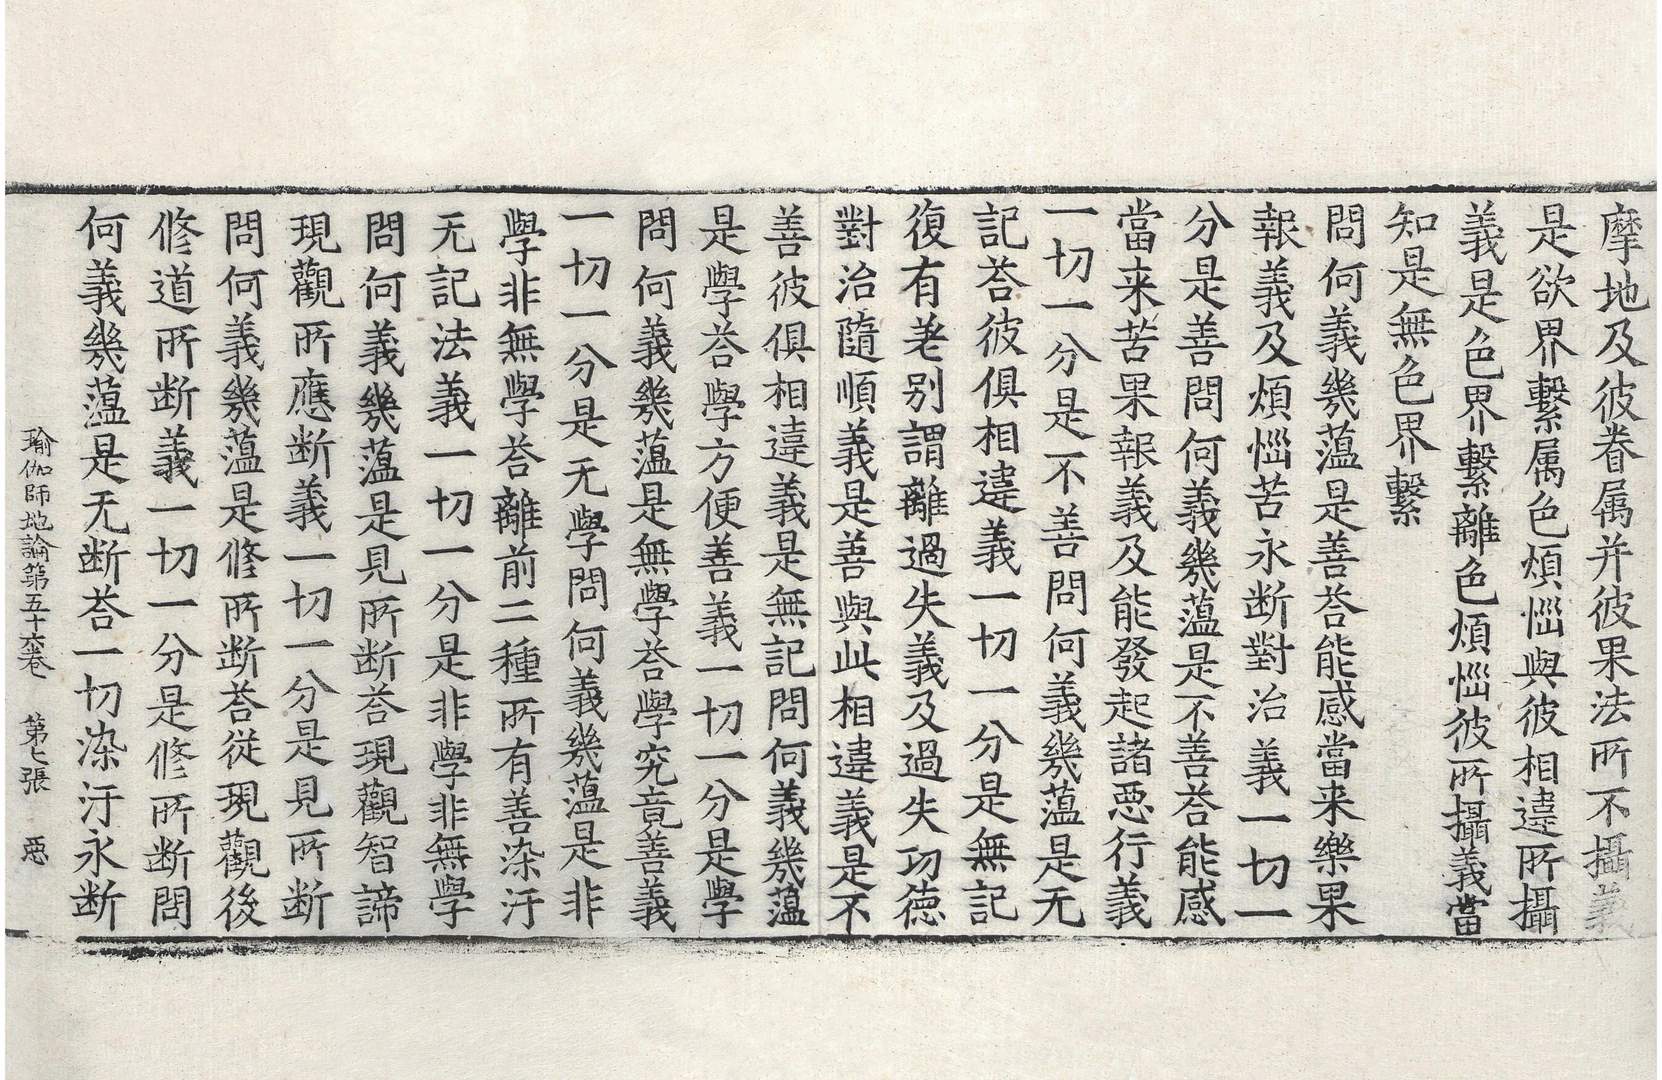 摩地及彼眷属并彼果法所不攝義
是欲界繫属色煩惱與彼相違所攝
義是色界繫離色煩惱彼所攝義當
知是無色界繫
問何義幾蕰是善荅能感當来樂果
報義及煩惱苦永断對治義一切一
分是善問何義幾蕰是不善荅能感
當来苦果報義及能發起諸惡行義
一切一分是不善問何義幾蕰是无
記荅彼俱相違義一切一分是無記
復有差别謂離過失義及過失功德
對治隨順義是善與此相違義是不
善彼俱相違義是無記問何義幾蕰
是學荅學方便善義一切一分是學
問何義幾蕰是無學荅學究竟善義
一切一分是无學問何義幾蕰是非
學非無學荅離前二種所有善染汙
无記法義一切一分是非學非無學
問何義幾蕰是見所断荅現觀智諦
現觀所應断義一切一分是見所断
問何義幾蕰是修所断荅從現觀後
修道所断義一切一分是修所断問
何義幾蕰是无断荅一切染汙永断
瑜伽師地論第五十六卷 第七張 惡